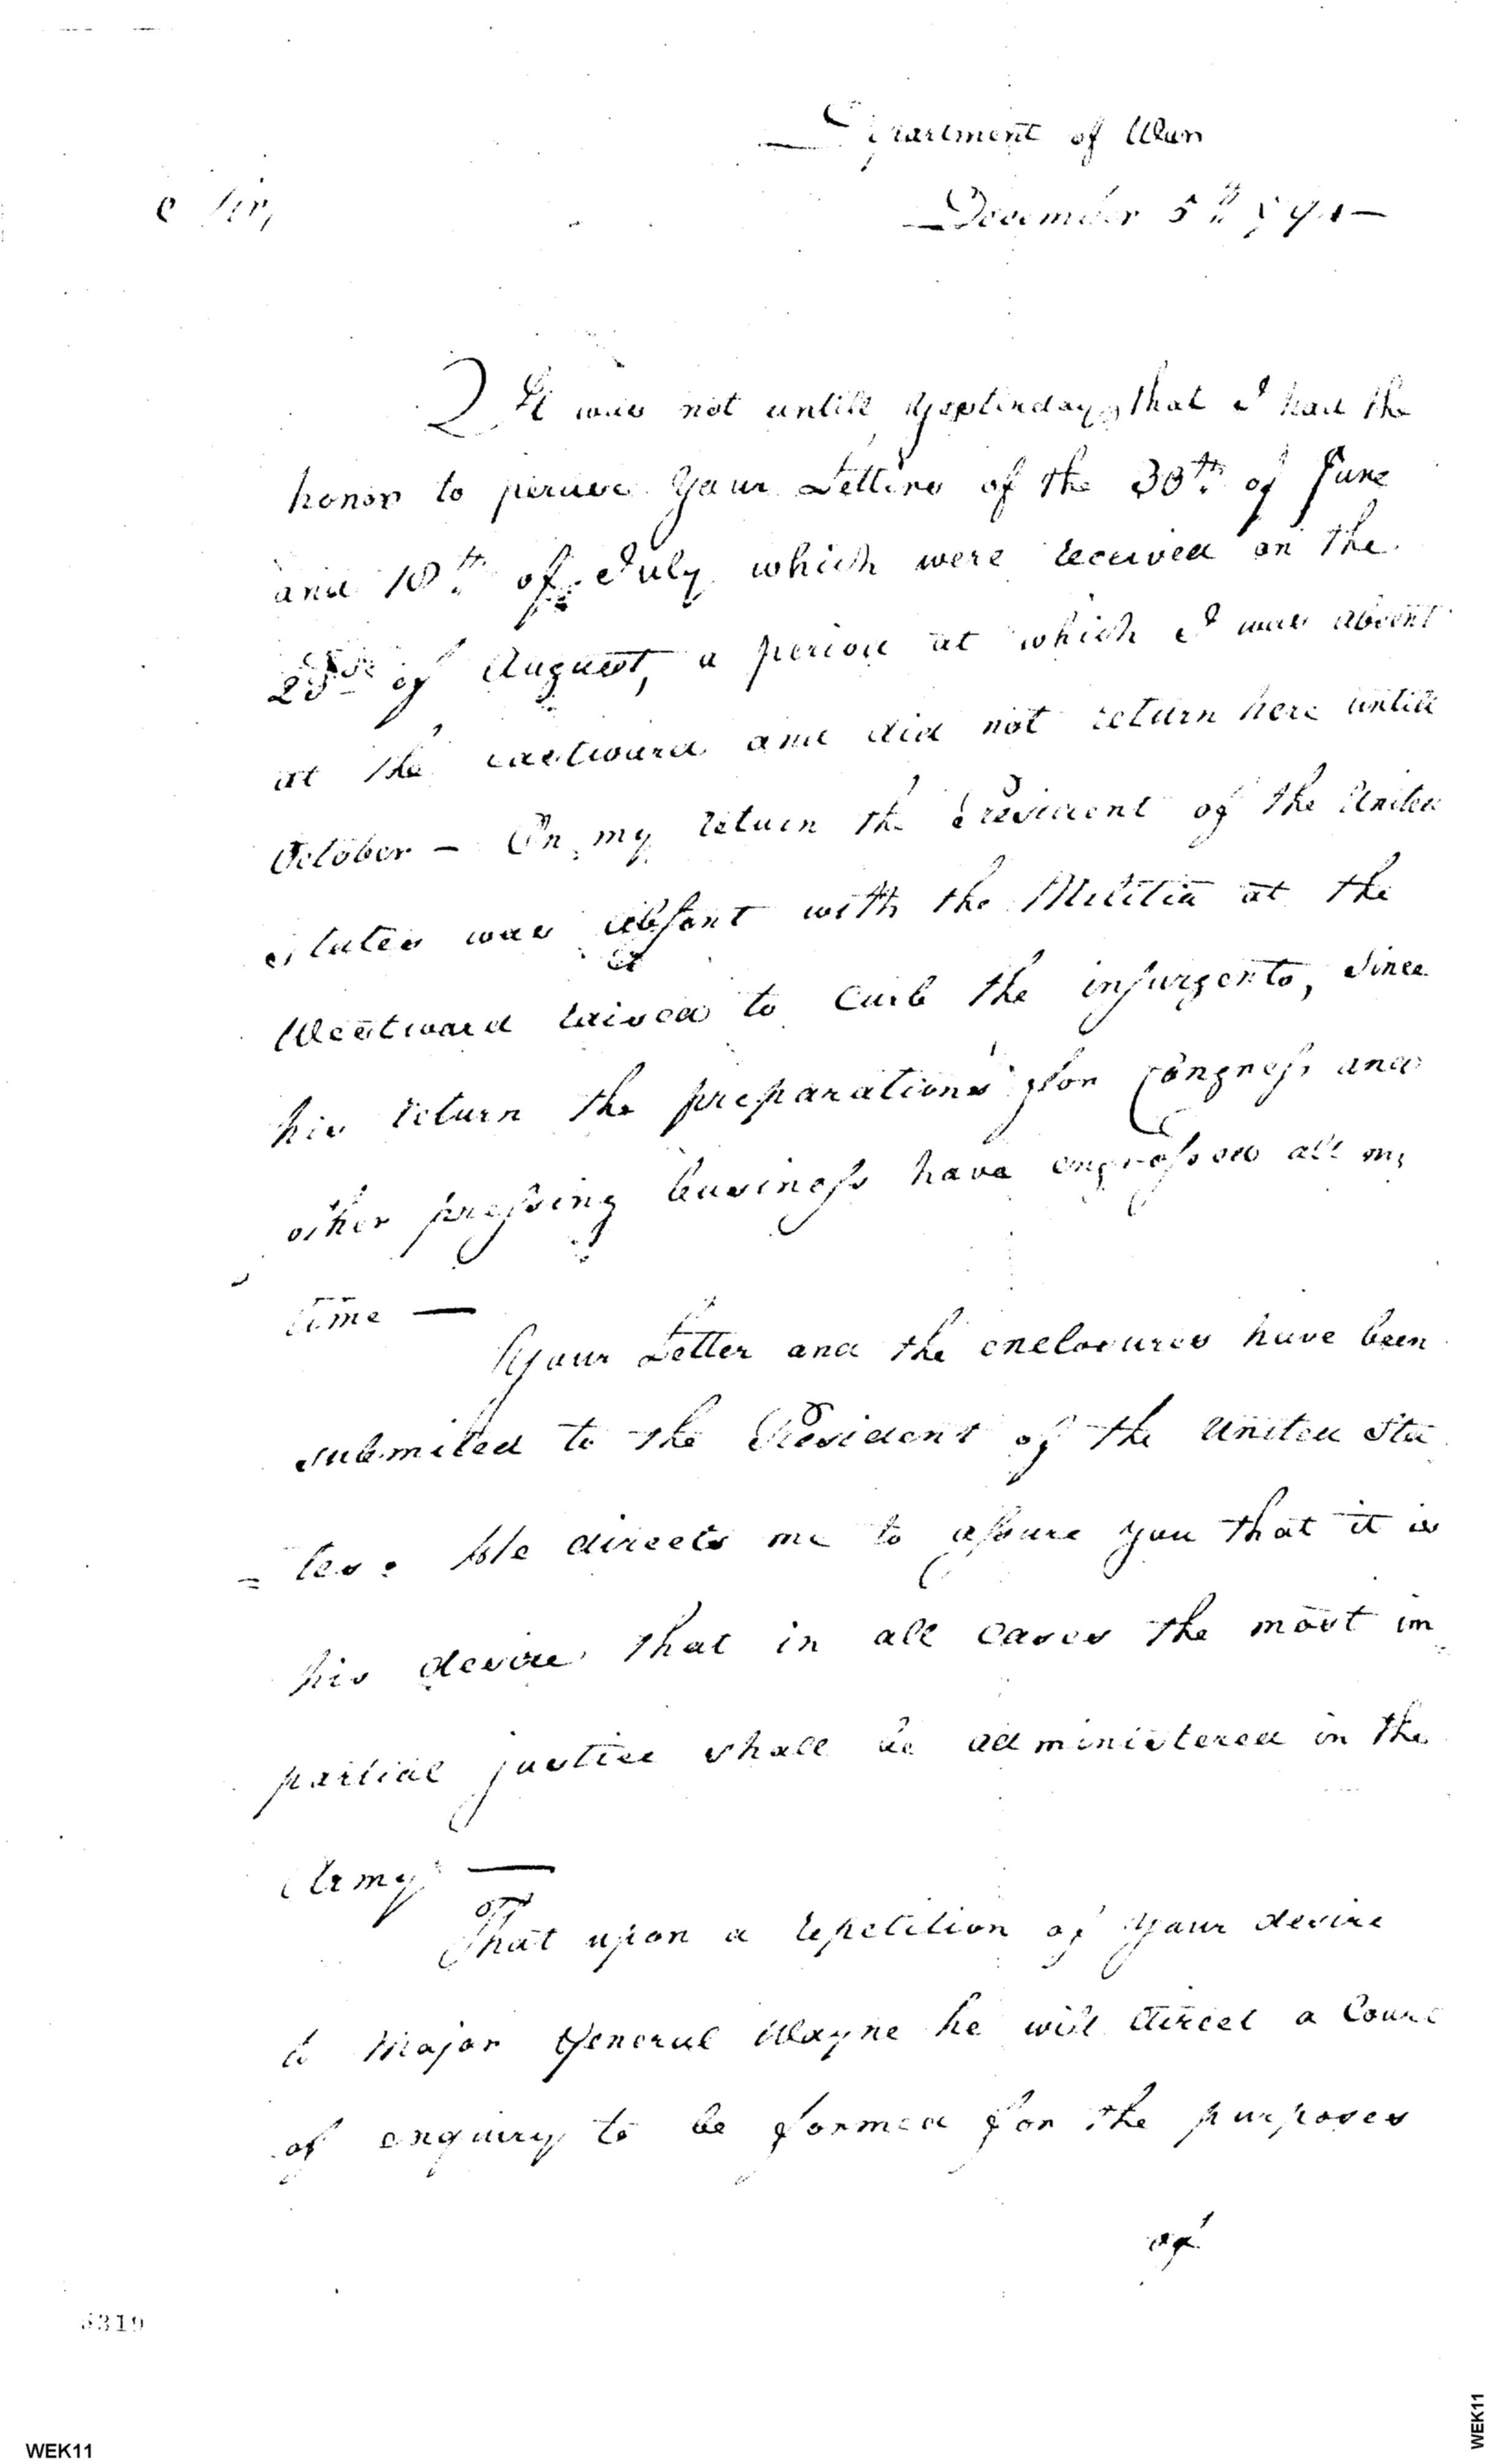 Department of War
Sir,
December 5th 1794
It was not untill Yesterday, that I had the
honor to peruse your Letters of the 30th of June
and 18th of July which were received on the
of August, a period at which I was absent
at the eastward and did not return here untill
October — On my return the President of the United
States was absent with the Militia at the
Westward raised to curb the insurgents, since
his return the preparations for Congress and
other pressing business have engrossed all my
time —
Your Letter and the enclosures have been
submited to the President of the United Sta
= tes. He directs me to assure you that it is
his desire that in all cases the most im
partial justice shall be administered in the
Army —
That upon a repetition of your desire
to Major General Wayne he will direct a Court
of enquiry to be formed for the purposes
of
3319
WEK11
WEK11